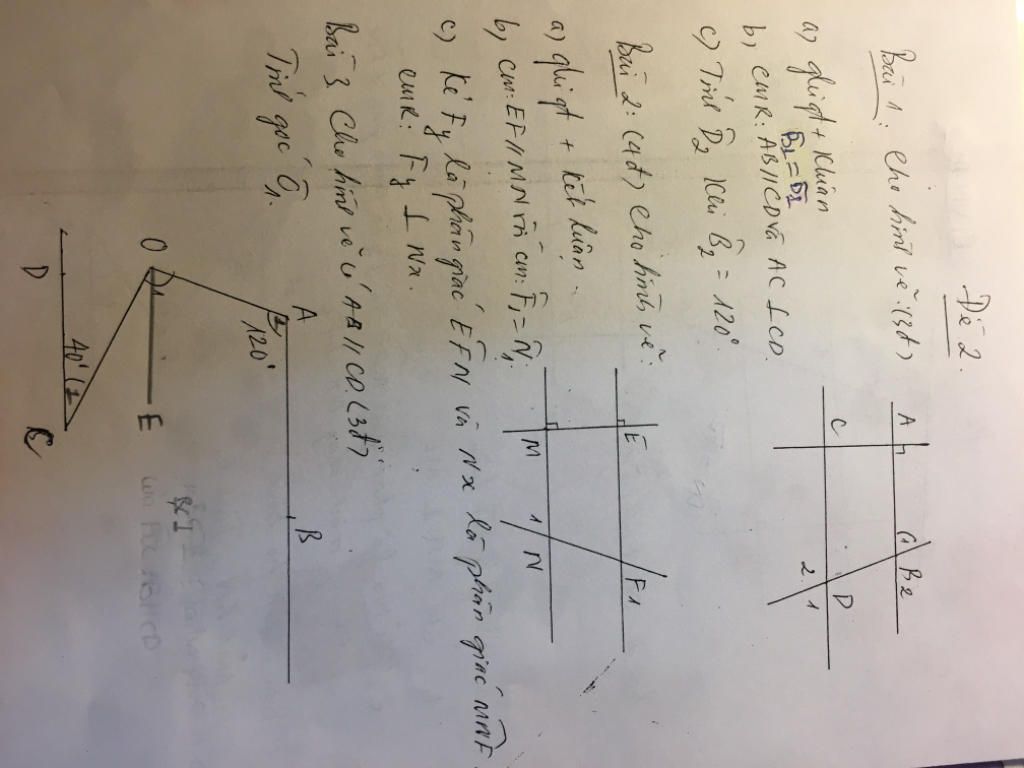 Đề 2.
Bài 1: Cho hình vẽ: (3đ)
a) ghi gt + kluân
B̂1 = D̂1
b) CMR: AB//CD và AC ⊥ CD.
c) Tính D̂2 khi B̂2 = 120°
A
B 2
C
D
2 1
Bài 2: (4đ) Cho hình vẽ:
a) ghi gt + kết luận
b) cm: EF // MN và cm: F̂1 = N̂1
c) Kẻ Fy là phân giác EFN và Nx là phân giác MNF.
CMR: Fy ⊥ Nx.
E
F 1
M
1
N
Bài 3. Cho hình vẽ có AB // CD (3đ)
Tính góc Ô1.
A
B
120°
O
1
E
40°
1
D
C